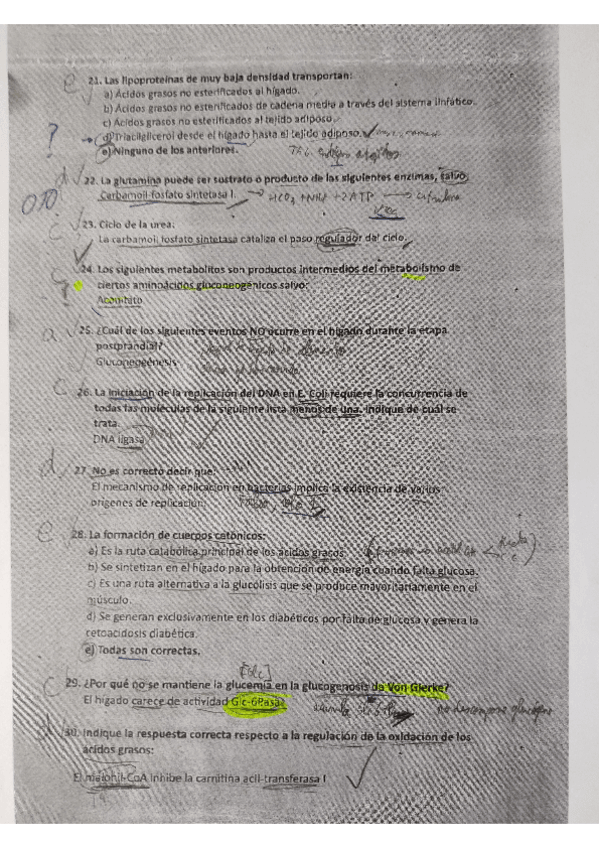 e 21. Las lipoproteínas de muy baja densidad transportan:
a) Ácidos grasos no esterificados al hígado.
b) Ácidos grasos no esterificados de cadena media a través del sistema linfático.
c) Ácidos grasos no esterificados al tejido adiposo.
? d) Triacilglicerol desde el hígado hasta el tejido adiposo.
e) Ninguno de los anteriores.
d 22. La glutamina puede ser sustrato o producto de las siguientes enzimas, salvo
Carbamoil-fosfato sintetasa I. HCO3 + NH4 + 2ATP
c 23. Ciclo de la urea:
La carbamoil fosfato sintetasa cataliza el paso regulador del ciclo.
24. Los siguientes metabolitos son productos intermedios del metabolismo de
ciertos aminoácidos gluconeogénicos salvo:
Aconitato
a 25. ¿Cuál de los siguientes eventos NO ocurre en el hígado durante la etapa
postprandial?
Gluconeogénesis
c 26. La iniciación de la replicación del DNA en E. Coli requiere la concurrencia de
todas las moléculas de la siguiente lista menos de una. Indique de cuál se
trata.
DNA ligasa
d 27. No es correcto decir que:
El mecanismo de replicación en bacterias implica la existencia de varios
orígenes de replicación.
e 28. La formación de cuerpos cetónicos:
a) Es la ruta catabólica principal de los ácidos grasos.
b) Se sintetizan en el hígado para la obtención de energía cuando falta glucosa.
c) Es una ruta alternativa a la glucólisis que se produce mayoritariamente en el
músculo.
d) Se generan exclusivamente en los diabéticos por falta de glucosa y genera la
cetoacidosis diabética.
e) Todas son correctas.
[Glc]
c 29. ¿Por qué no se mantiene la glucemia en la glucogenosis de Von Gierke?
El hígado carece de actividad Glc-6Pasa
d 30. Indique la respuesta correcta respecto a la regulación de la oxidación de los
ácidos grasos:
El malonil-CoA inhibe la carnitina acil-transferasa I